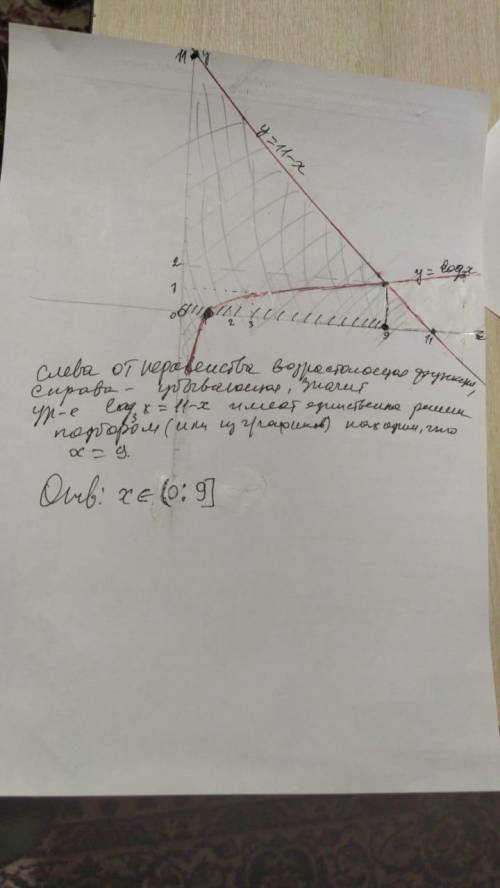 11 y
y = 11-x
2
1
y = log₃x
0 1 2 3 9 11 x
слева от неравенства возрастающая функция,
справа - убывающая, значит
ур-е log₃x = 11-x имеет единственное решен
подбором (или из графиков) находим, что
x = 9.
Отв: x ∈ (0; 9]